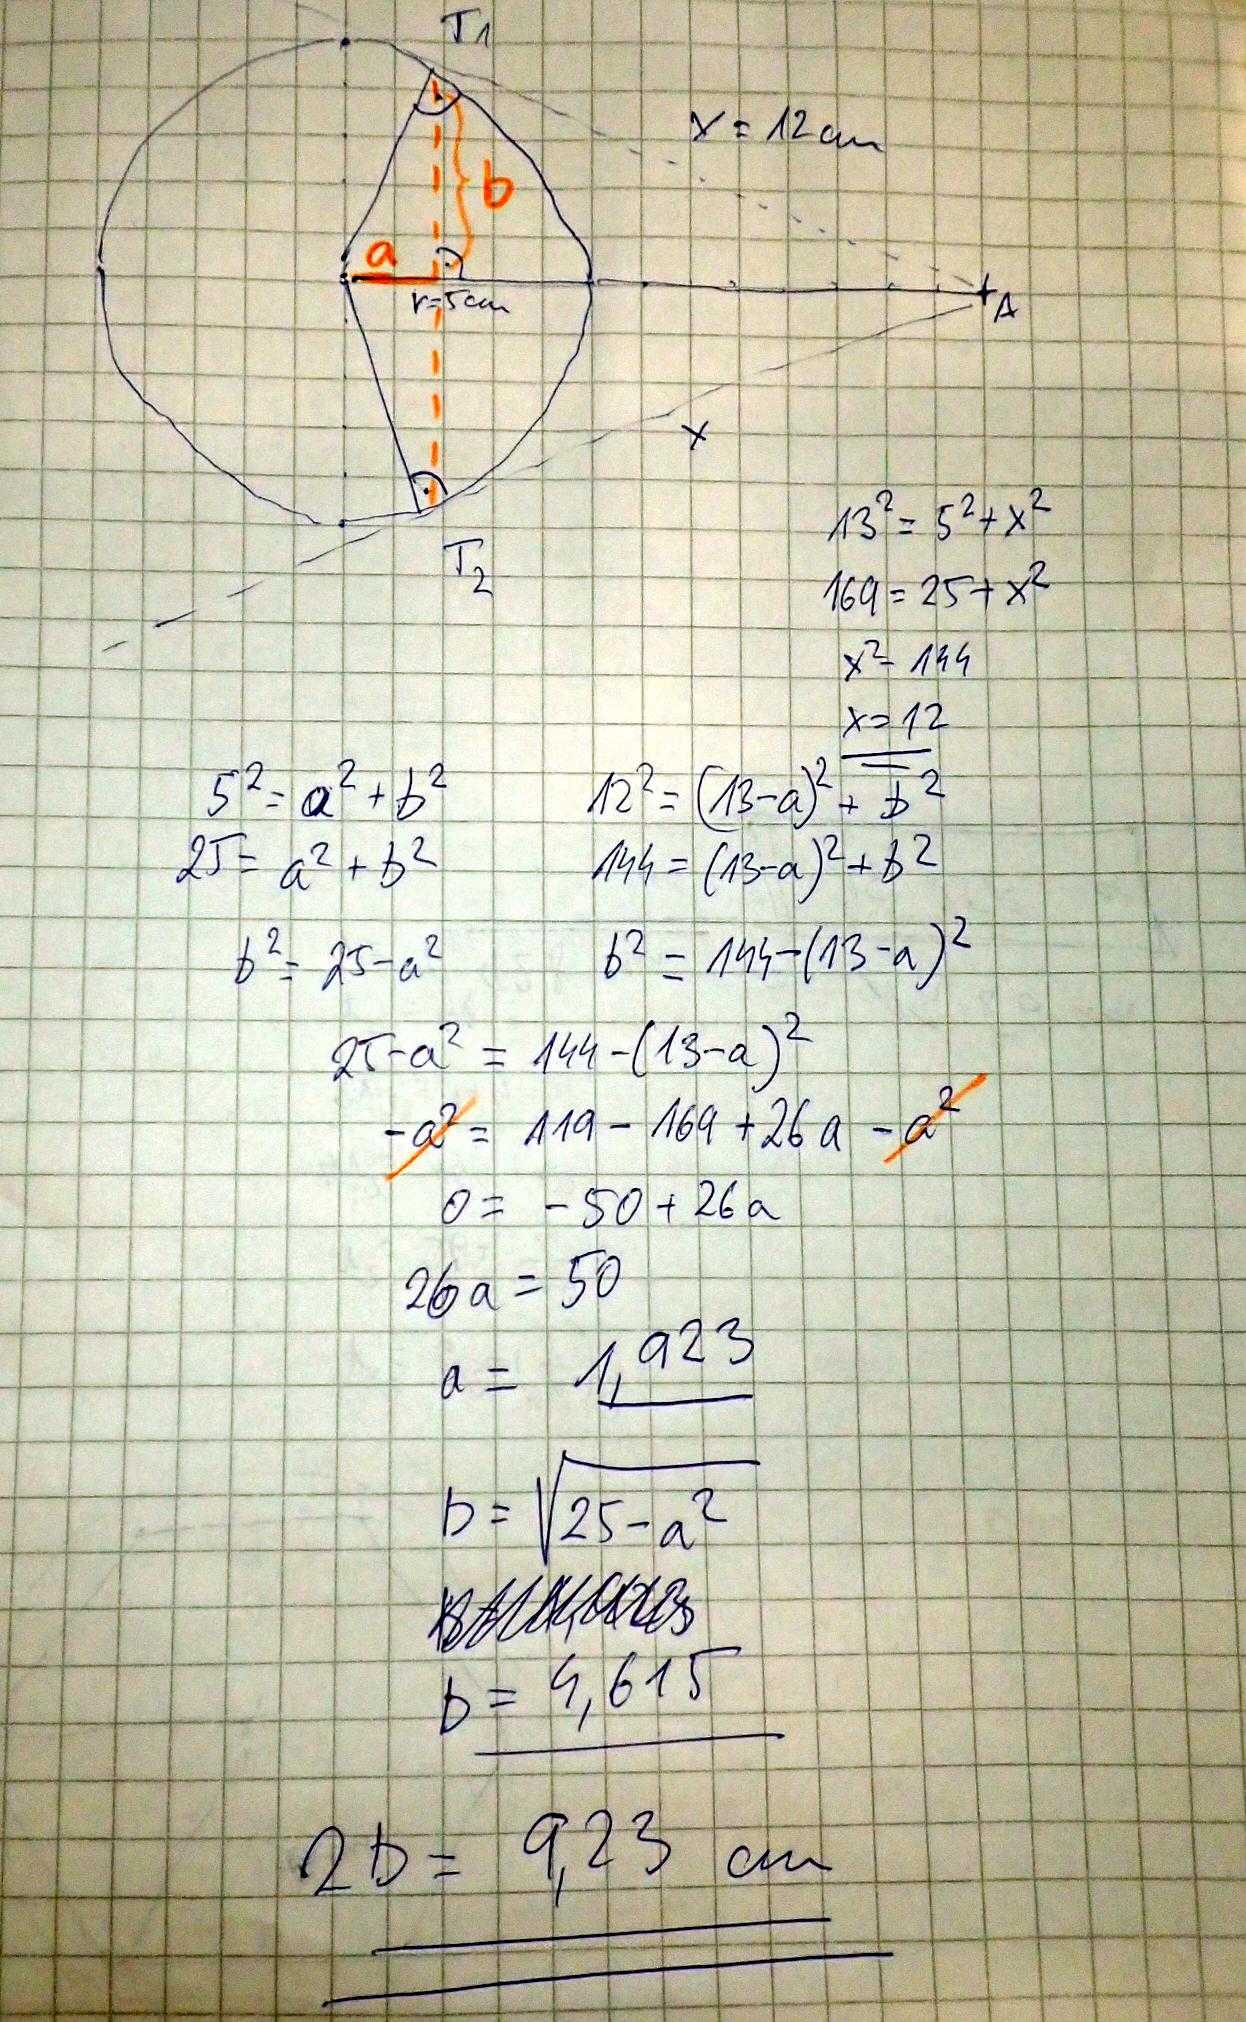 T1
x = 12 cm
b
a
r=5cm
A
x
T2
13² = 5² + x²
169 = 25 + x²
x² = 144
x = 12
5² = a² + b²
12² = (13-a)² + b²
25 = a² + b²
144 = (13-a)² + b²
b² = 25 - a²
b² = 144 - (13-a)²
25 - a² = 144 - (13-a)²
-a² = 119 - 169 + 26a - a²
0 = -50 + 26a
26a = 50
a = 1,923
b = √25-a²
b = 4,615
2b = 9,23 cm